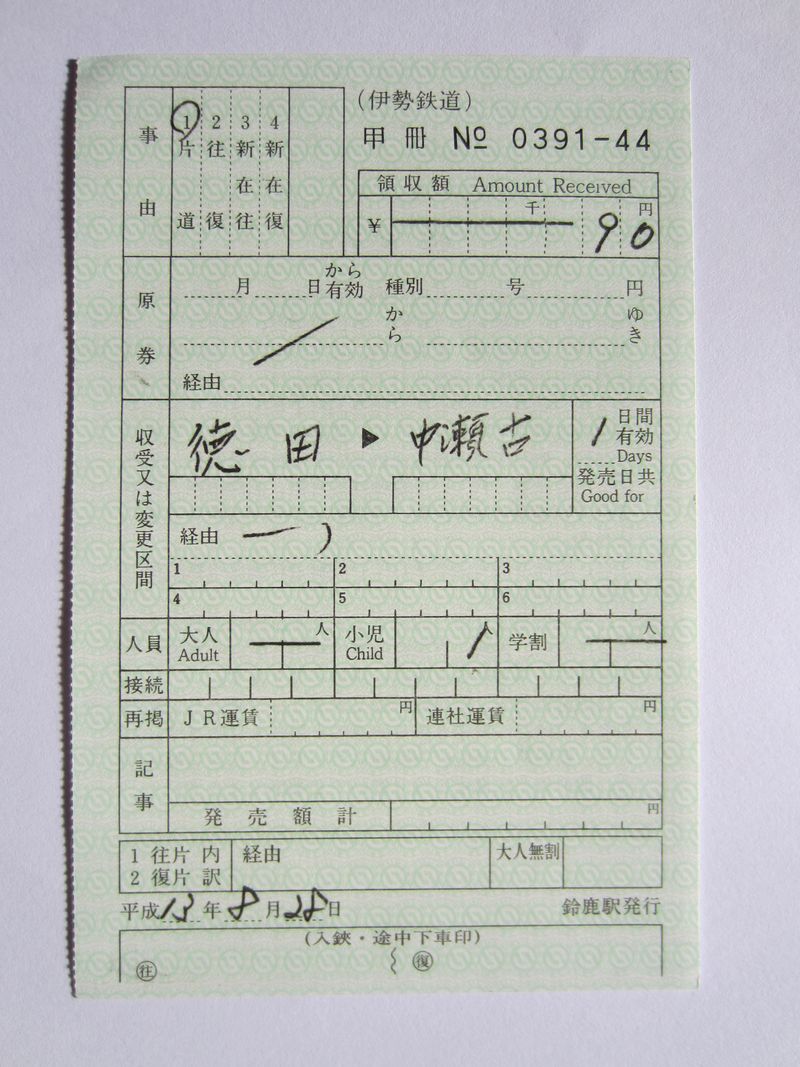 (伊勢鉄道)
甲 冊 № 0391-44
事由
1 片道
2 往復
3 新在往
4 新在復
領収額 Amount Received
¥ 千 90 円
原券
月 日から有効 種別 号 円
から ゆき
経由
収受又は変更区間
徳田 ▶ 中瀬古
1 日間有効 Days
発売日共 Good for
経由
1 2 3
4 5 6
人員 大人 Adult 人 小児 Child 1 人 学割 人
接続
再掲 JR運賃 円 連社運賃 円
記事
発売額計 円
1 往片 内 経由 大人無割
2 復片 訳
平成13年8月28日 鈴鹿駅発行
(入鋏・途中下車印)
往 復